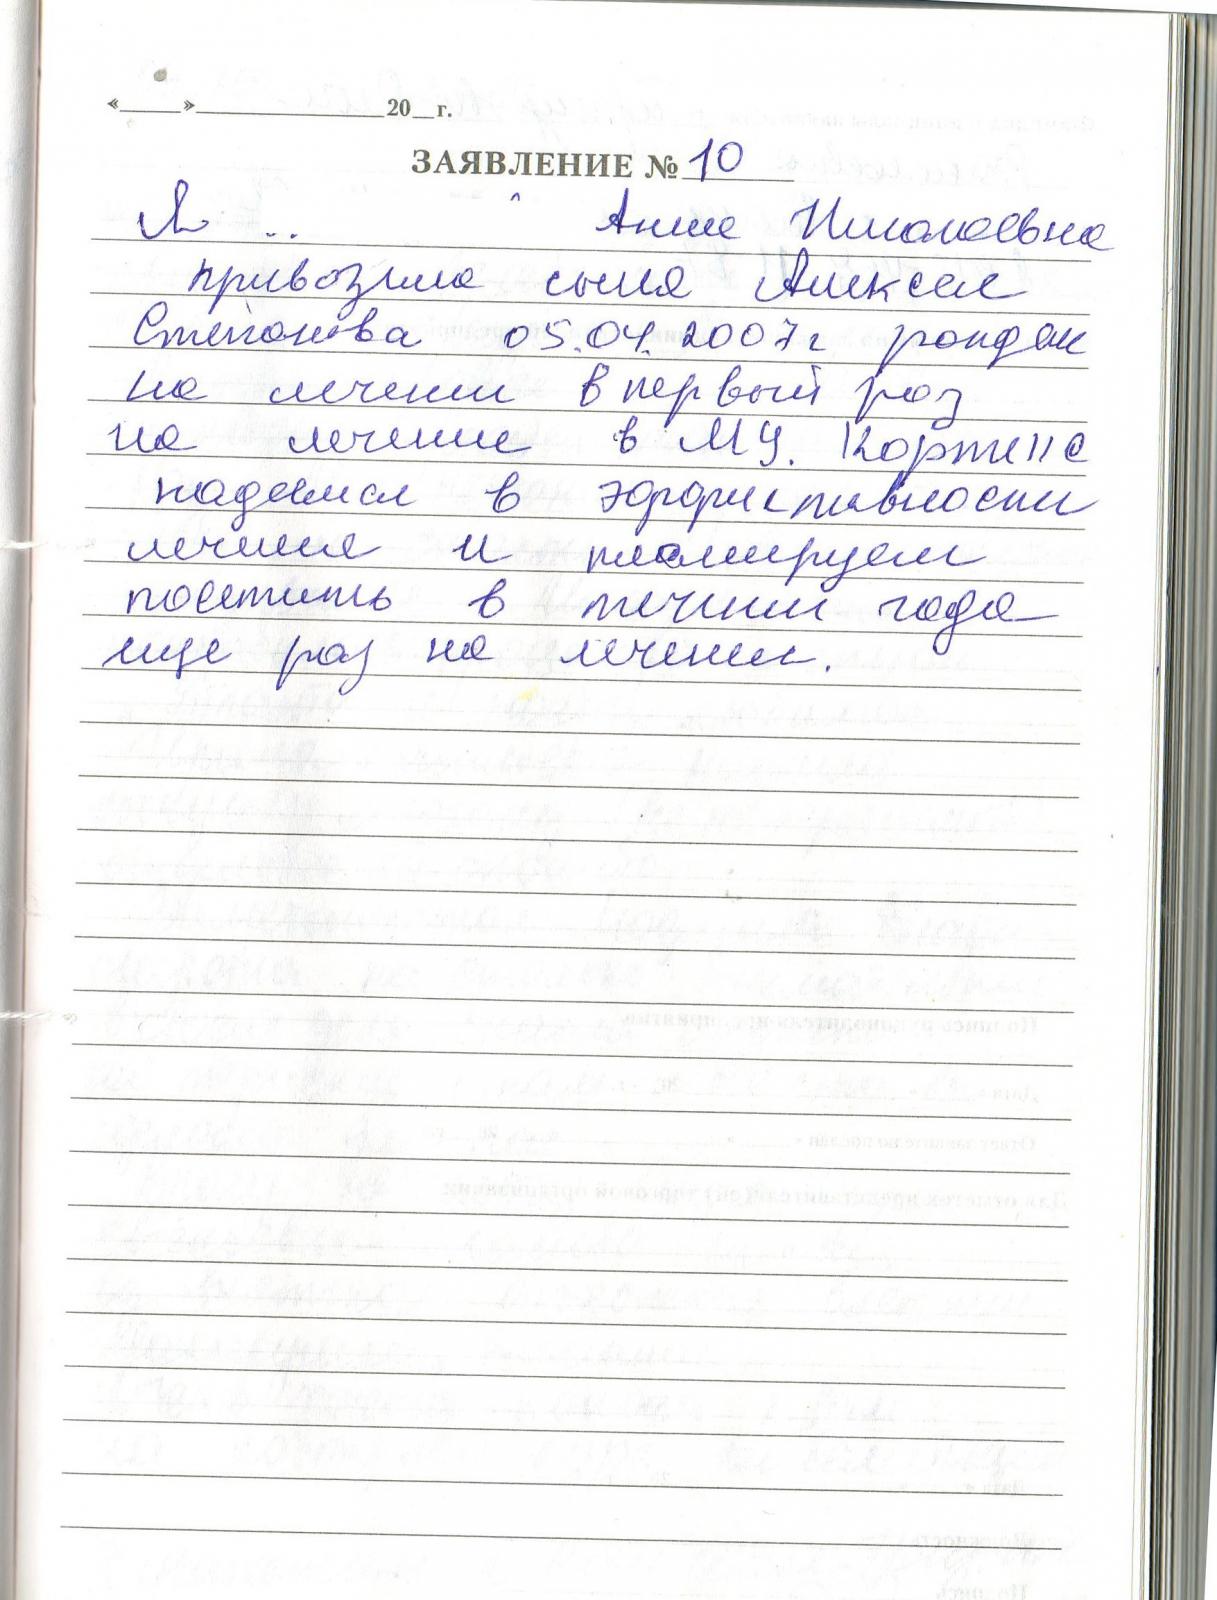 «____»______________20__г.
ЗАЯВЛЕНИЕ № 10
Я .. Анна Николаевна
привозила сына Алексея
Степанова 05.04.2007г рожден
на лечении в первый раз
на лечение в МУ. Кортекс
надеемся в эффективности
лечения и планируем
посетить в течении года
еще раз на лечении.